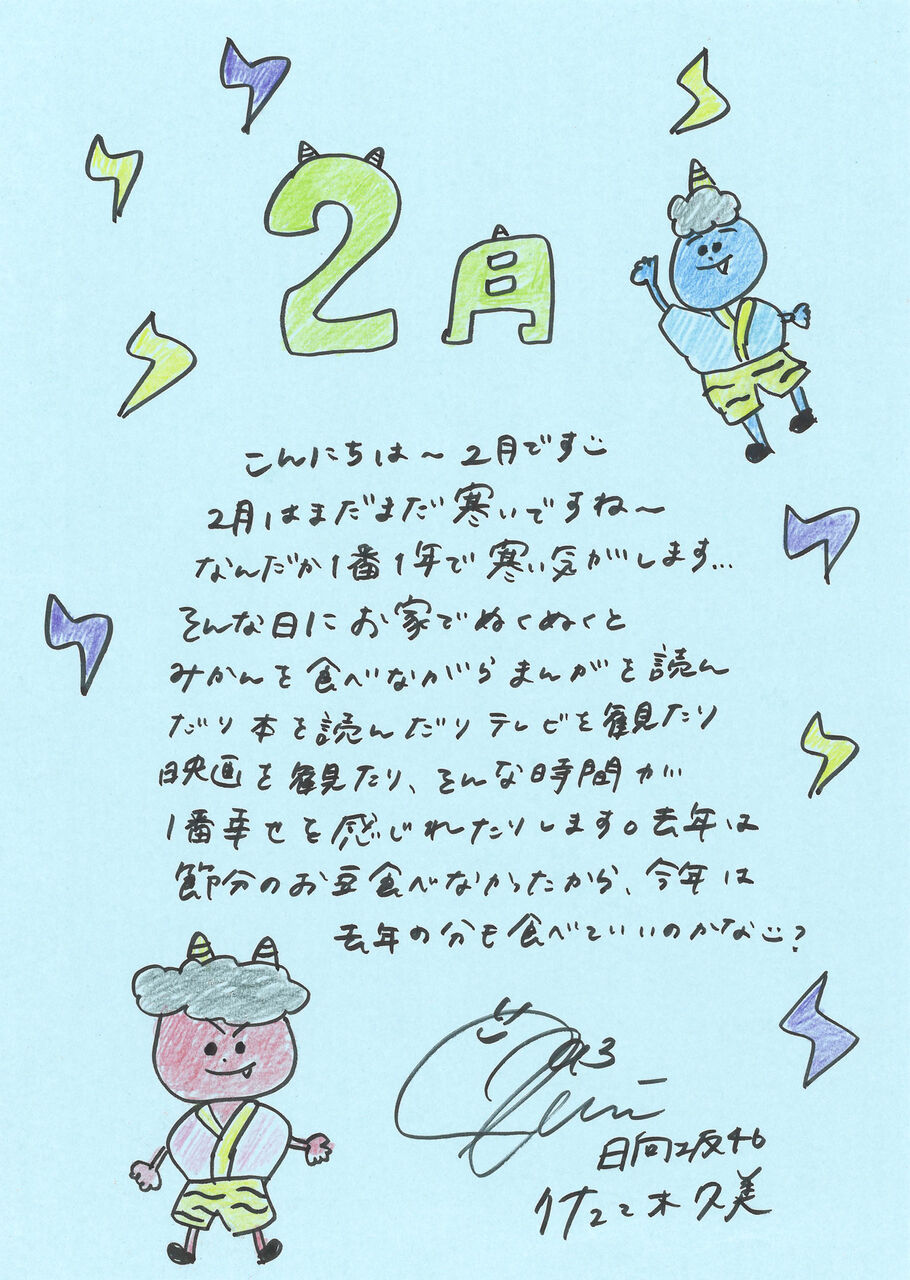 2月
こんにちは〜 2月です
2月はまだまだ寒いですね〜
なんだか1番1年で寒い気がします...
そんな日にお家でぬくぬくと
みかんを食べながらまんがを読ん
だり本を読んだりテレビを観たり
映画を観たり、そんな時間が
1番幸せを感じれたりします。去年は
節分のお豆食べなかったから、今年は
去年の分も食べていいのかな?
日向坂46
佐々木久美